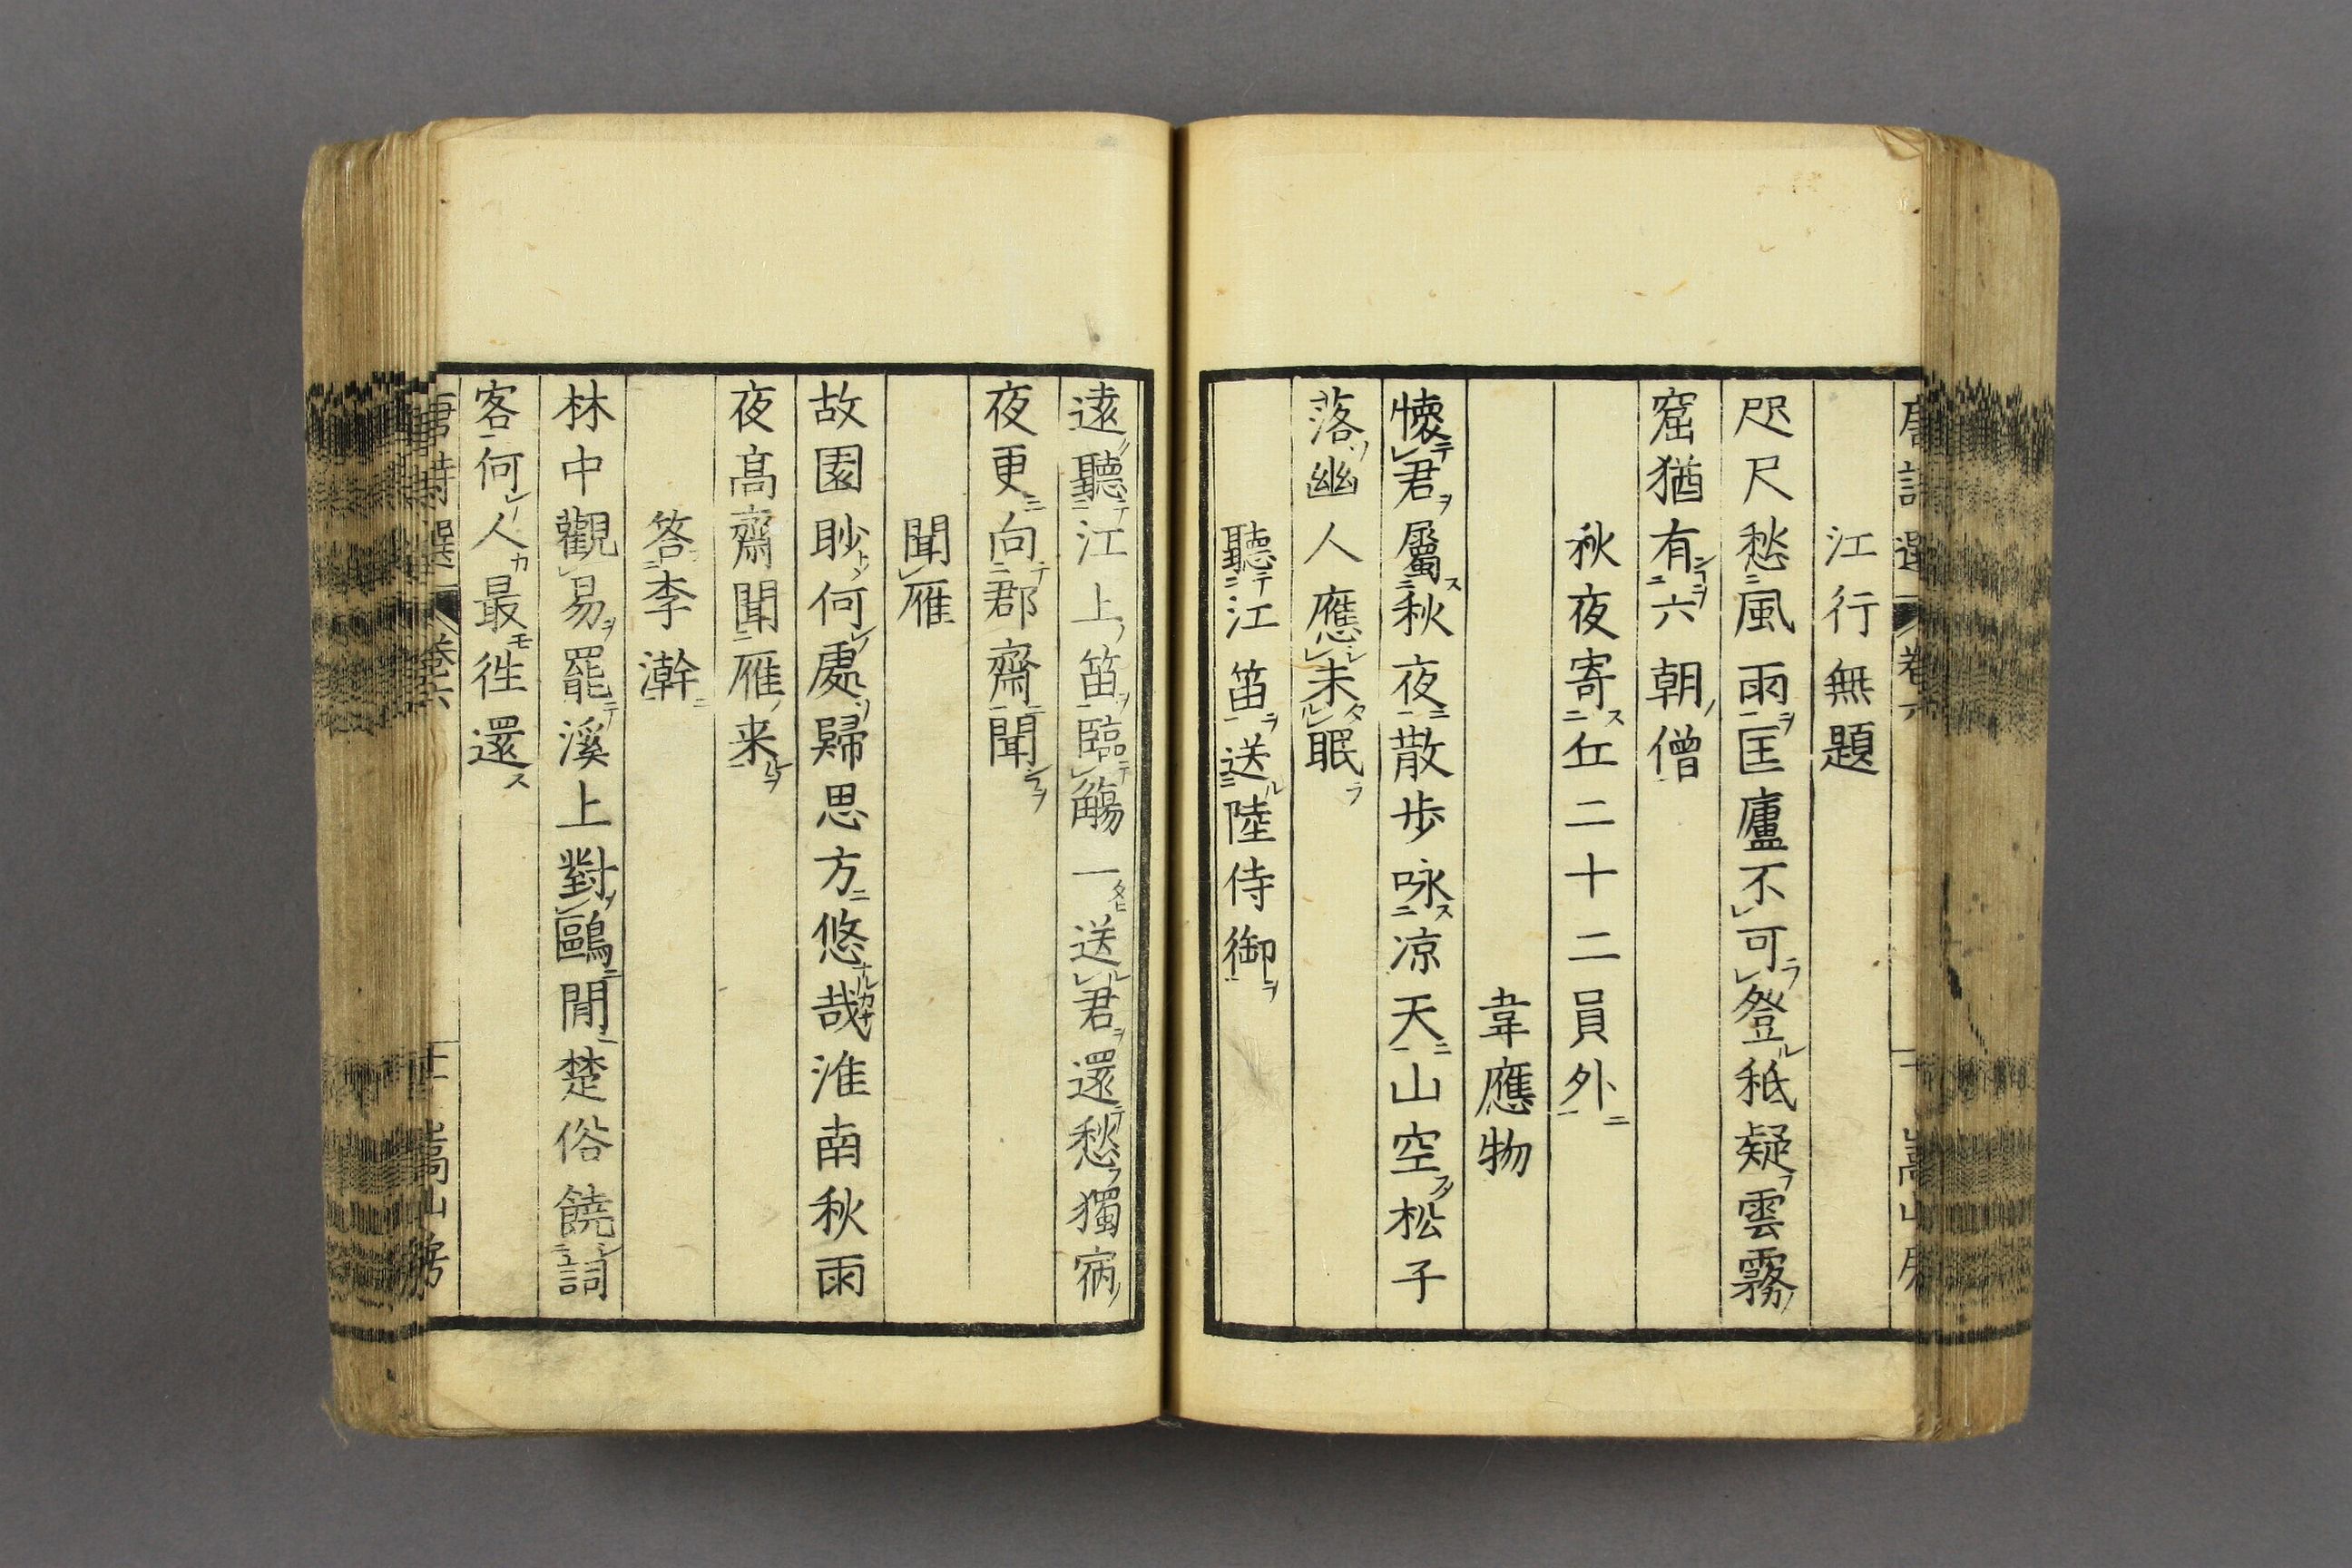 唐詩選 卷六 十 嵩山房
江行無題
咫尺愁風雨匡廬不可登秪疑雲霧
窟猶有六朝僧
秋夜寄丘二十二員外
韋應物
懷君屬秋夜散歩咏凉天山空松子
落幽人應未眠
聽江笛送陸侍御
遠聽江上笛臨觴一送君還愁獨宿
夜更向郡齋聞
聞雁
故園眇何處歸思方悠哉淮南秋雨
夜高齋聞雁来
答李澣
林中觀易罷溪上對鷗閒楚俗饒詞
客何人最徃還
唐詩選 卷六 嵩山房